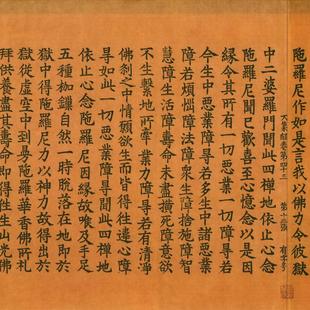 陁羅尼作如是言我以佛力令彼獄
大集經卷第廿二 第十張 有字号
中二婆羅門聞此四禪地依止心念
陁羅尼聞已歡喜至心憶念以是因
緣令其所有一切惡業障㝵若
今生中惡業障㝵若多生中諸惡業
障若煩惱障法障衆生障捨施障智
慧障生活障壽命未盡障意欲
不生繫地所牽業力障㝵若有清淨
佛刹之中情願欲生而皆得往違心障
㝵如此一切惡業障㝵聞此四禪地
依止心念陁羅尼因緣故喉及手足
五種枷鏁自然一時脫落在地即於
獄中得陁羅尼力以神力故得出於
獄從虛空中到曼陁羅華香佛所礼
拜供養盡其壽命即得往生山光佛